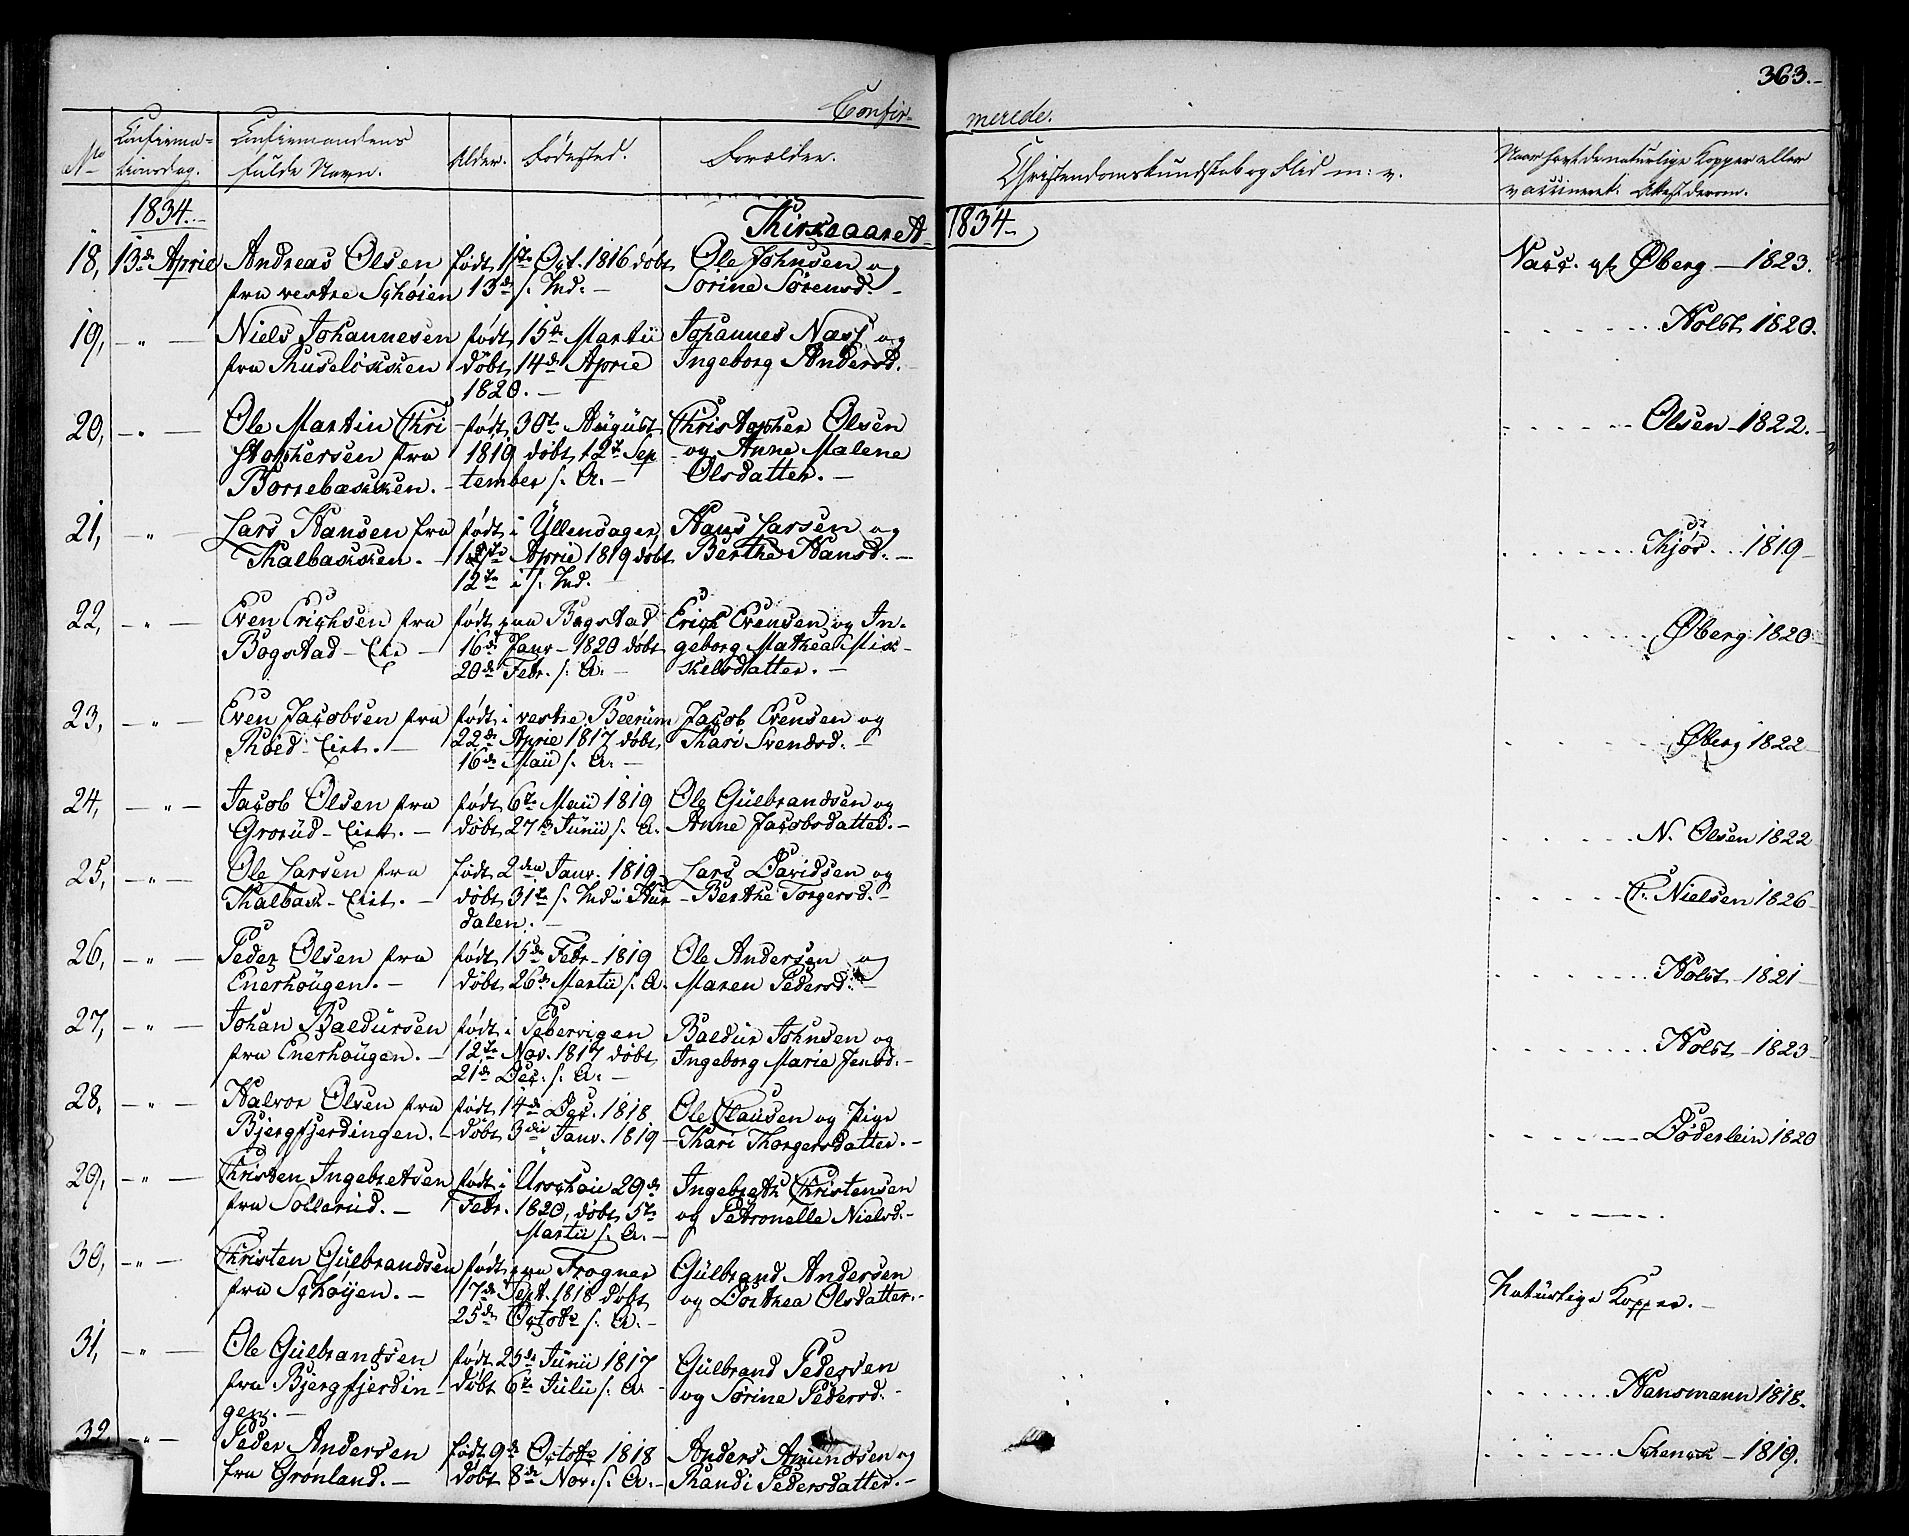 363.-
Confir-
merede.
No Confirma- Confirmandens Alder. Fødested. Forældre. Christendomskundskab og Flid m: v. Naar havt de naturlige Kopper eller
tionsdag. fulde Navn. vaccineret. Attest derom.
1834.- 1834-
18, 13de April Andreas Olsen født 1ste Oct. 1816 døbt Ole Johnsen og Vacc. af Øberg - 1823.
fra vestre Schøien 13de s. Md. - Sorine Sørensd. -
19, - " - Niels Johannesen født 15de Martii Johannes Næss og Holst 1820.
fra Ruseløkken døbt 14de April Ingeborg Andersd.
1820. -
20, - " - Ole Martin Chri født 30te August Christopher Olsen Olsen - 1822.
stophersen fra 1819 døbt 12te Sep - og Anne Malene
Borrebækken. - tember s. A. - Olsdatter. -
21, - " - Lars Hansen fra født i Ullensager Hans Larsen og Thjør 1819 -
Kalbakken. - April 1819 døbt Berthe Hansd: -
12te i s. Md.
22, - " - Even Erichsen fra født paa Bogstad Erich Evensen og In- Øberg 1820
Bogstad - Eie - 16de Janv - 1820 døbt geborg Mathea Mik-
20de Febr. s. A. - kelsdatter. -
23, - " - Even Jacobsen fra født i vestre Beerum Jacob Evensen og Øberg 1822
Røed - Eie. - 22de April 1817 døbt Kari Svendsd. -
16de Maii s. A. -
24, - " - Jacob Olsen fra født 6te Maii 1819 Ole Gulbrandsen og
Grorud - Eie. - døbt 27de Junii s. A. Anne Jacobsdatter. - N. Olsen 1822
25, - " - Ole Larsen fra født 2den Janv. 1819 Lars Davidsen og
Kalbak - Eie. - døbt 31te s. Md i Hur - Berthe Torgersd. - C. Nielsen 1826
dalen. -
26, - " - Peder Olsen fra født 15de Febr - 1819 Ole Andersen og Holst - 1821
Enerhougen. - døbt 26de Martii s. A. Maren Pedersd. -
27, - " - Johan Baldursen født i Pebervigen Baldur Johnsen og
fra Enerhougen. - 12te Nov. 1817 døbt Ingeborg Marie Jensd. - Holst - 1823
21de Dec. s. A. -
28, - " - Halvor Olsen fra født 14de Dec. 1818 Ole Clausen og Pige
Bjergfjerdingen. - døbt 3die Janv. 1819 - Kari Thorgersdatter. - Døderlein 1820
29, - " - Christen Ingebretsen født i Urschou 29de Ingebreth Christensen
fra Sollerud. - Febr. 1820, døbt 5te og Petronelle Nielsd. -
Martii s. A. -
30, - " - Christen Gulbrandsen født paa Frogner Gulbrand Andersen Naturlige Kopper. -
fra Schøyen. - 17de Sept. 1818 døbt og Dorthea Olsdatter. -
25de Octobr s. A. -
31, - " - Ole Gulbrandsen født 25de Junii 1817 Gulbrand Pedersen
fra Bjergfjerdin - døbt 6te Julii s. A. og Sørine Pedersd. - Hansmann 1818.
gen. -
32, - " - Peder Andersen født 9de Octobr 1818 Anders Amundsen og Schenck - 1819.
fra Grønland. - døbt 8de Nov. s. A. - Randi Pedersdatter. -